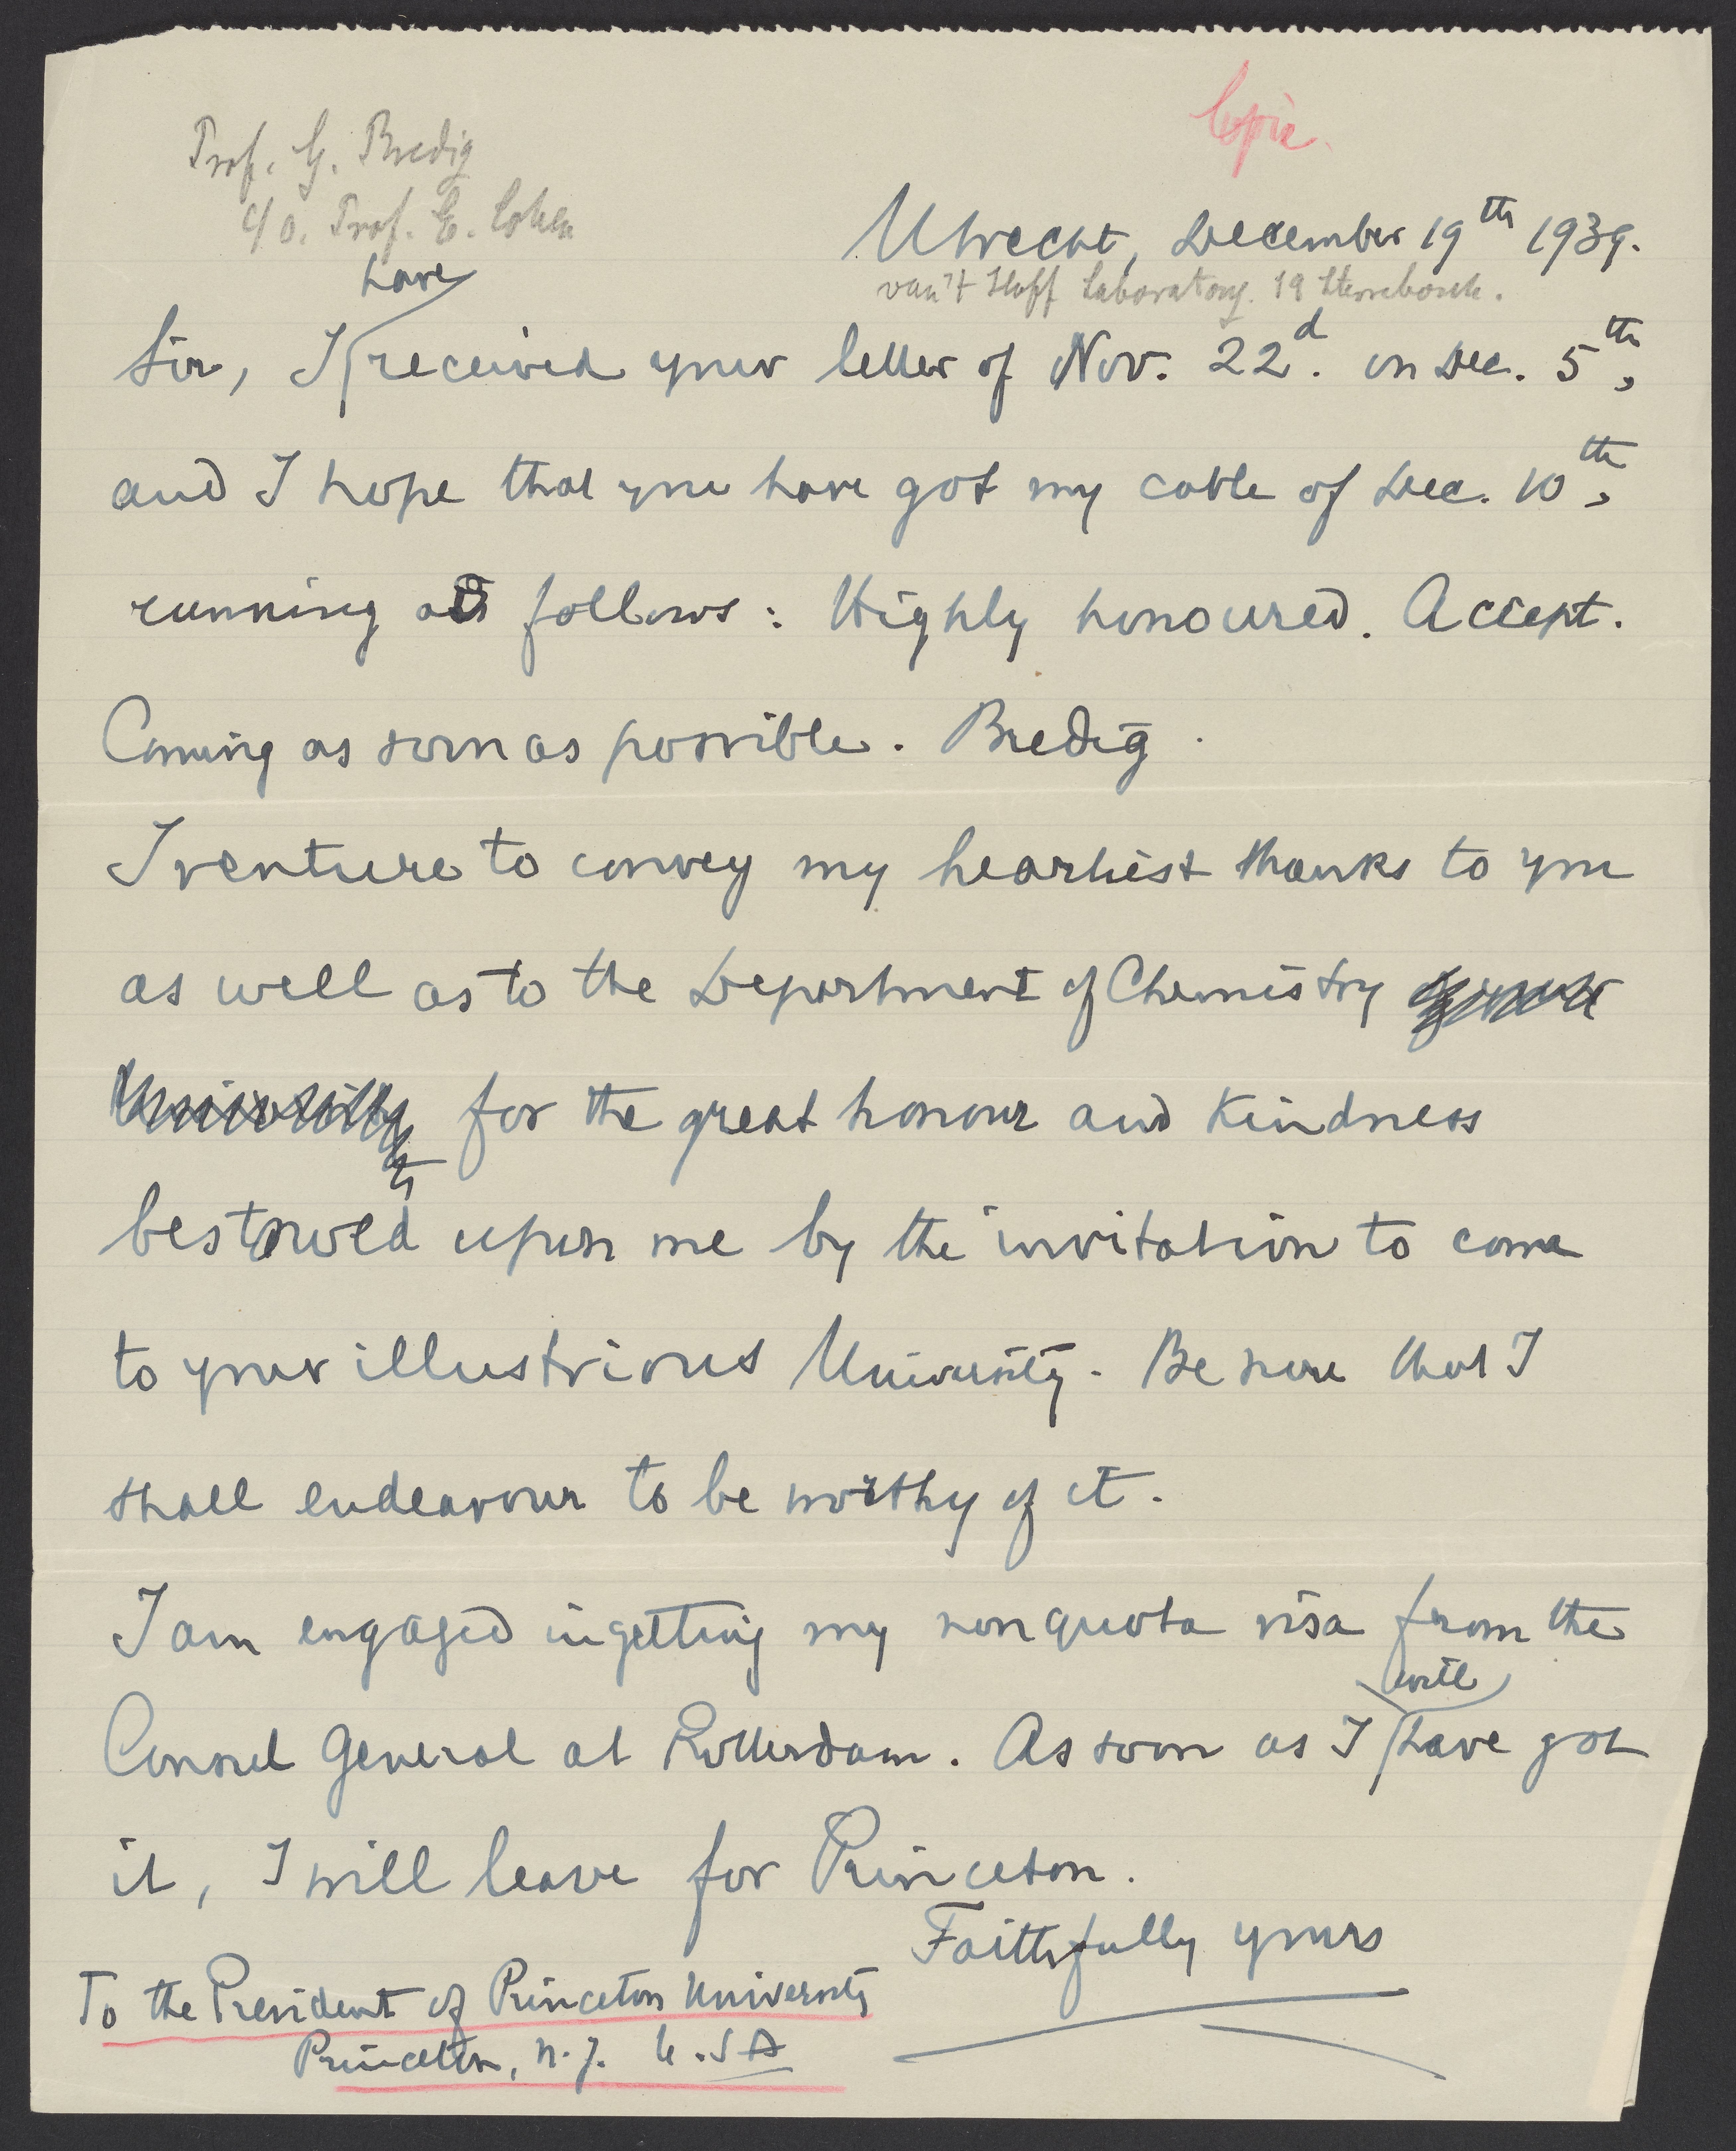 Copie.
Prof. G. Bredig
c/o. Prof. E. Cohen
Utrecht, December 19th 1939.
van't Hoff Laboratory. 19 Sterrebosch.
have
Sir, I received your letter of Nov. 22d. on Dec. 5th,
and I hope that you have got my cable of Dec. 10th,
running as follows: Highly honoured. Accept.
Coming as soon as possible. Bredig.
I venture to convey my heartiest thanks to you
as well as to the Department of Chemistry of your
University for the great honour and kindness
bestowed upon me by the invitation to come
to your illustrious University. Be sure that I
shall endeavour to be worthy of it.
I am engaged in getting my nonquota visa from the
will
Consul General at Rotterdam. As soon as I have got
it, I will leave for Princeton.
Faithfully yours
To the President of Princeton University
Princeton, N.J. U.SA